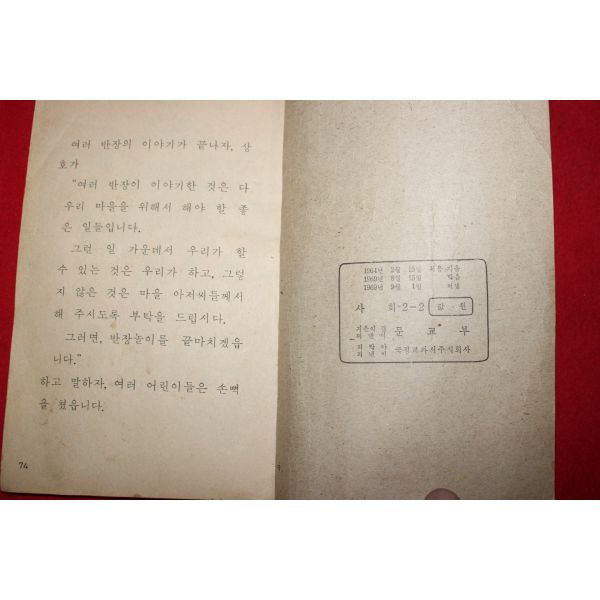 여러 반장의 이야기가 끝나자, 상
호가
"여러 반장이 이야기한 것은 다
우리 마을을 위해서 해야 할 좋
은 일들입니다.
그런 일 가운데서 우리가 할
수 있는 것은 우리가 하고, 그렇
지 않은 것은 마을 아저씨들께서
해 주시도록 부탁을 드립시다.
그러면, 반장놀이를 끝마치겠읍
니다."
하고 말하자, 여러 어린이들은 손뼉
을 쳤읍니다.
74
1964년 2월 15일
1969년 8월 25일 박음
1969년 9월 1일 펴냄
사 회 2-2 값 원
문 교 부
국정교과서주식회사